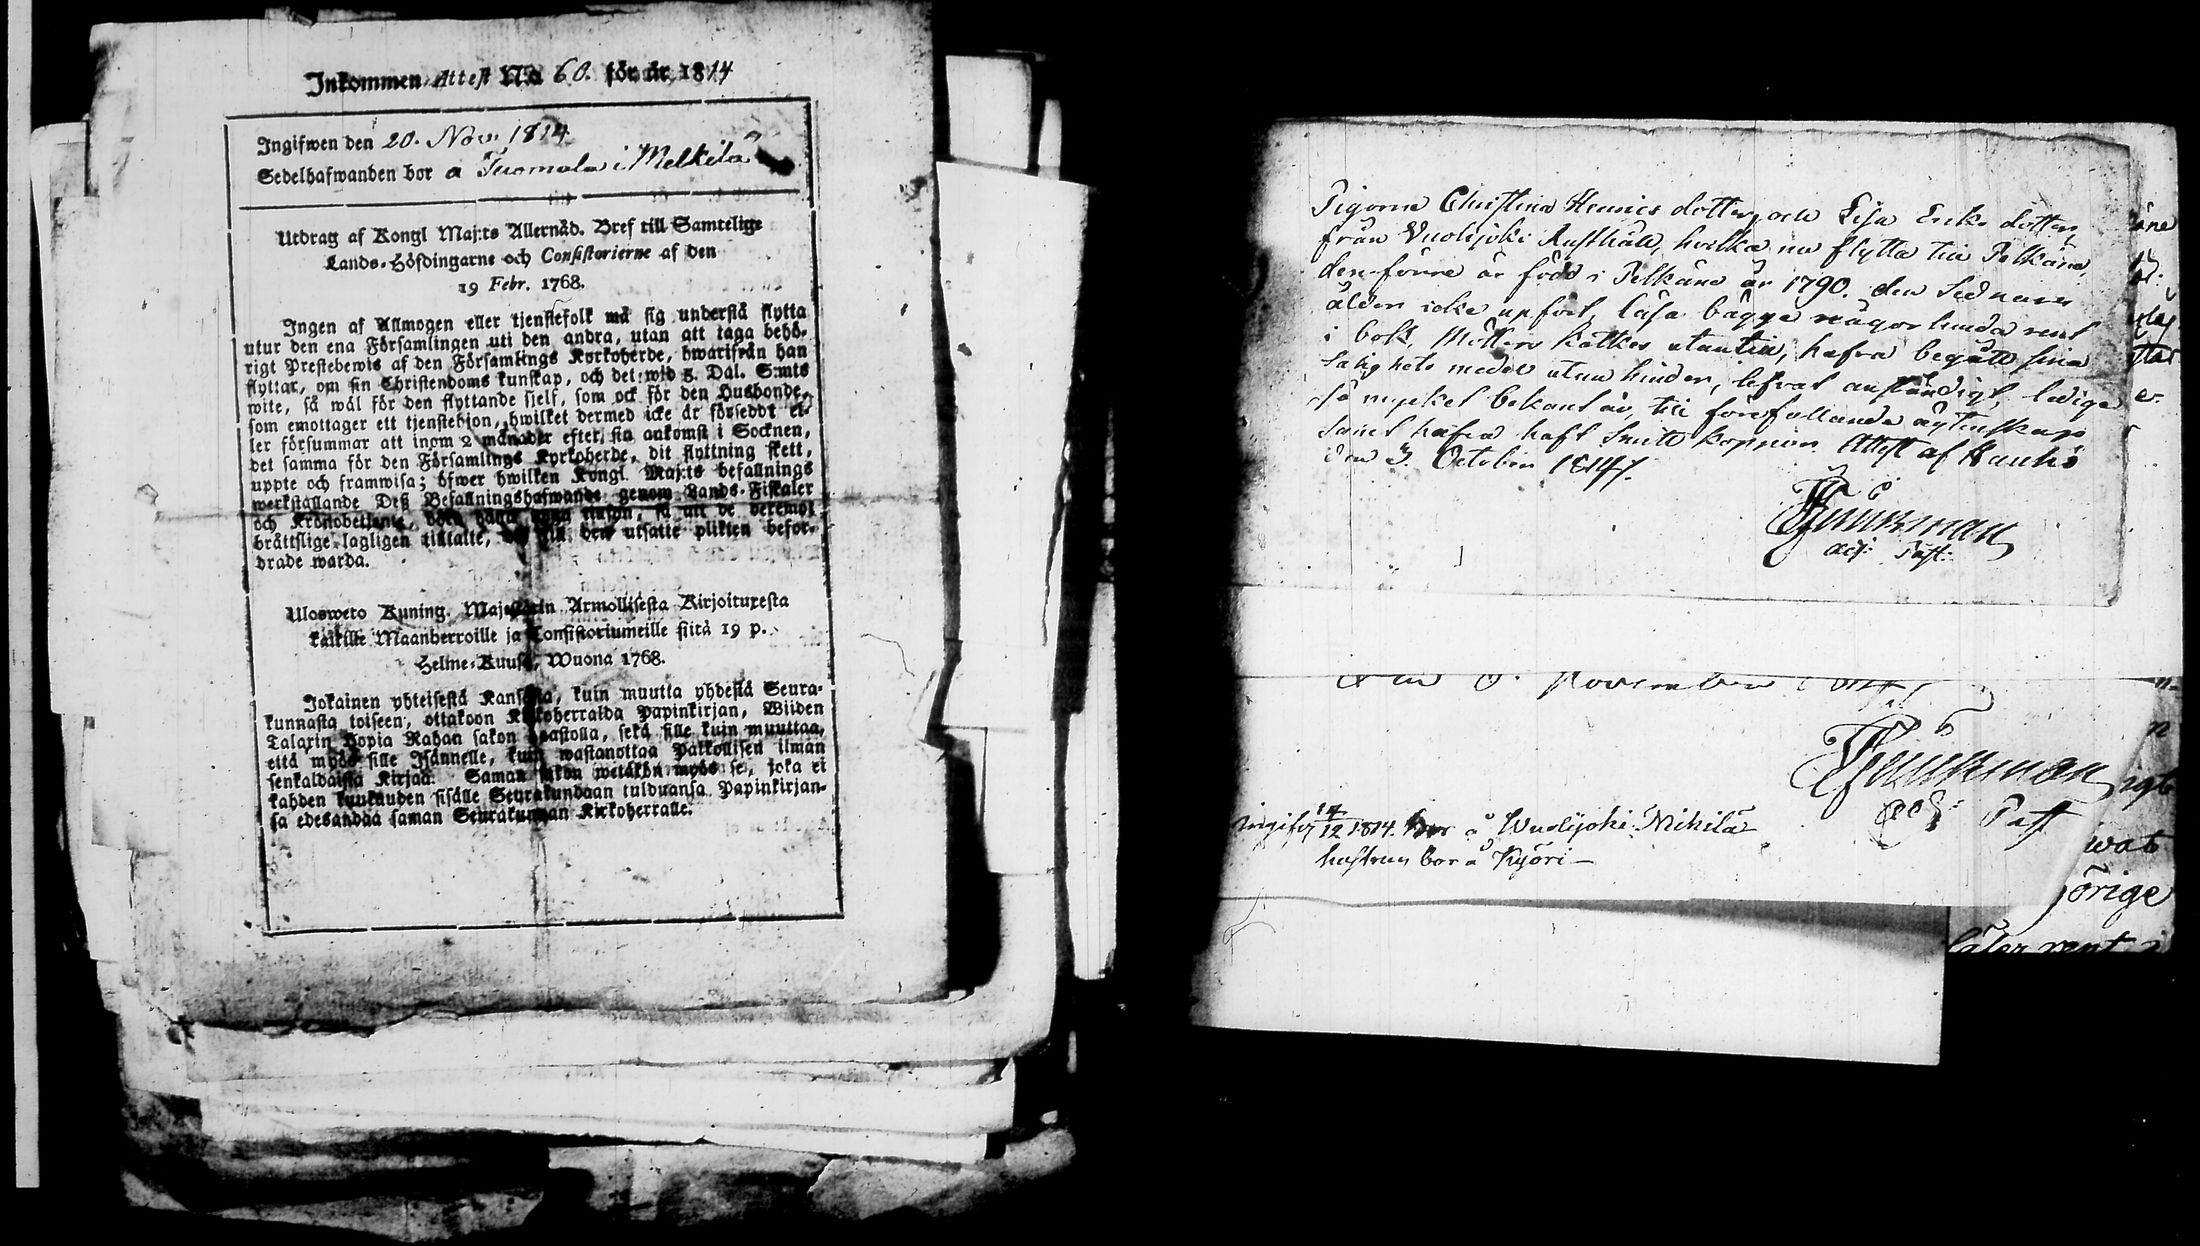 Inkommen Attest No 60. för år 1814
Ingifwen den 20. Nov. 1814
Sedelhafwanden bor å Tuomala i Melkila
Utdrag af Kongl Maj:ts Allernåd. Bref till Samtelige
Lands-Höfdingarne och Consistorierne af den
19 Febr. 1768.
Ingen af Allmogen eller tjenstefolk må sig understå flytta
utur den ena Församlingen uti den andra, utan att taga behö-
rigt Prestebewis af den Församlings Kyrkoherde, hwarifrån han
flyttar, om sin Christendoms kunskap, och det wid 5. Dal. S:mts
wite, så wäl för den flyttande sielf, som ock för den Husbonde,
som emottager ett tjenstehjon, hwilket dermed icke är försedt el-
ler försummar att inom 2 månader efter sin ankomst i Socknen,
det samma för den Församlings Kyrkoherde, dit flyttning skett,
uppte och framwisa; öfwer hwilken Kongl. Maj:ts befallnings
werkställande Deß Befallningshafwande genom Lands-Fiskaler
och Kronobetjente, böra hålla noga tillsyn, så att de deremot
bråttslige lagligen tilltalte, och till den utsatte plikten befor-
drade warda.
Ulosweto Kuning. Majestetin Armollisesta Kirjoituxesta
kaikille Maanherroille ja Consistoriumeille siitä 19 p.
Helme-Kuusa, Wuona 1768.
Jokainen yhteisestä Kansasta, kuin muutta yhdestä Seura-
kunnasta toiseen, ottakoon Kirkoherralda Papinkirjan, Wiiden
Talarin Hopia Rahan sakon haastolla, sekä sille kuin muuttaa,
että myös sille Isännelle, kuin wastanottaa Palkollisen ilman
senkaldaista Kirjaa. Saman sakon wetäkön myös se, joka ei
kahden kuukauden sisälle Seurakundaan tulduansa Papinkirjan-
sa edesandaa saman Seurakunnan Kirkoherralle.
Pigorna Christina Henrics dotter, och Lisa Eriks dotter,
från Vuolijoki Rusthåll, hvilka nu flytta till Pelkäne,
den förre är född i Pelkäne år 1790. den sednares
ålder icke upförd, läsa bägge någorlunda rent
i bok, Möllers Katkes utantill, hafva begått sina
salighets medel utan hinder, lefvat anständigt, lediga
så mycket bekant är, till förefallande ägtenskap
samt hafva haft Smitt koppor. Attest af Hauho
den 3. October 1814.
adj. Past.
November 1814
adj: Past
ingifv 14/12 1814. bor å Wuolijoki Mikilä
hustrun bor å Kyöri